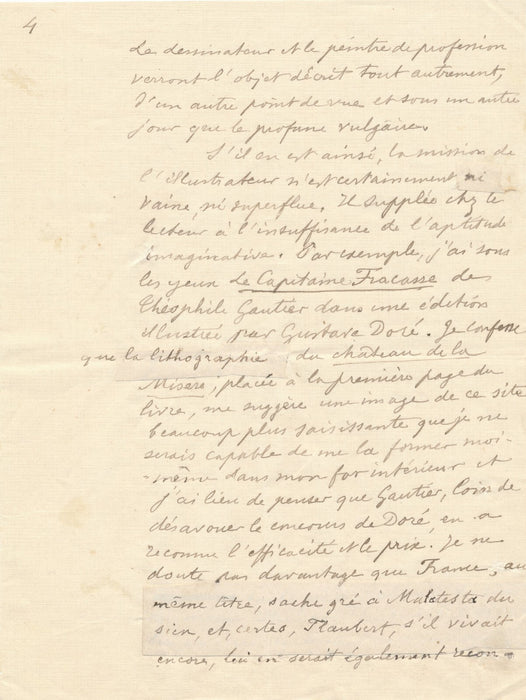 4
Le dessinateur et le peintre de profession
verront l'objet décrit tout autrement,
d'un autre point de vue et sous un autre
jour que le profane vulgaire.
S'il en est ainsi, la mission de
l'illustrateur n'est certainement ni
vaine, ni superflue. Il supplée chez le
lecteur à l'insuffisance de l'aptitude
imaginative. Par exemple, j'ai sous
les yeux Le Capitaine Fracasse de
Théophile Gautier dans une édition
illustrée par Gustave Doré. Je confesse
que la lithographie du château de la
Misère, placée à la première page du
livre, me suggère une image de ce site
beaucoup plus saisissante que je ne
serais capable de me la former moi-
-même dans mon for intérieur et
j'ai lieu de penser que Gautier, loin de
désavouer le concours de Doré, en a
reconnu l'efficacité et le prix. Je ne
doute pas davantage que France, au
même titre, sache gré à Malatesta du
sien, et, certes, Flaubert, s'il vivait
encore, lui en serait également recon-